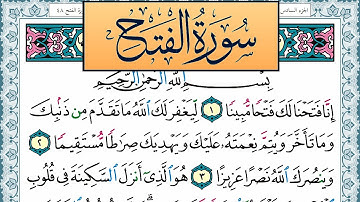 الجزء السادس
سورة الفتح ٤٨
سُورَةُ الفَتْحِ
بِسْمِ اللَّهِ الرَّحْمَٰنِ الرَّحِيمِ
إِنَّا فَتَحْنَا لَكَ فَتْحًا مُّبِينًا ١ لِّيَغْفِرَ لَكَ اللَّهُ مَا تَقَدَّمَ مِن ذَنۢبِكَ
وَمَا تَأَخَّرَ وَيُتِمَّ نِعْمَتَهُۥ عَلَيْكَ وَيَهْدِيَكَ صِرَٰطًا مُّسْتَقِيمًا ٢
وَيَنصُرَكَ اللَّهُ نَصْرًا عَزِيزًا ٣ هُوَ الَّذِىٓ أَنزَلَ السَّكِينَةَ فِى قُلُوبِ